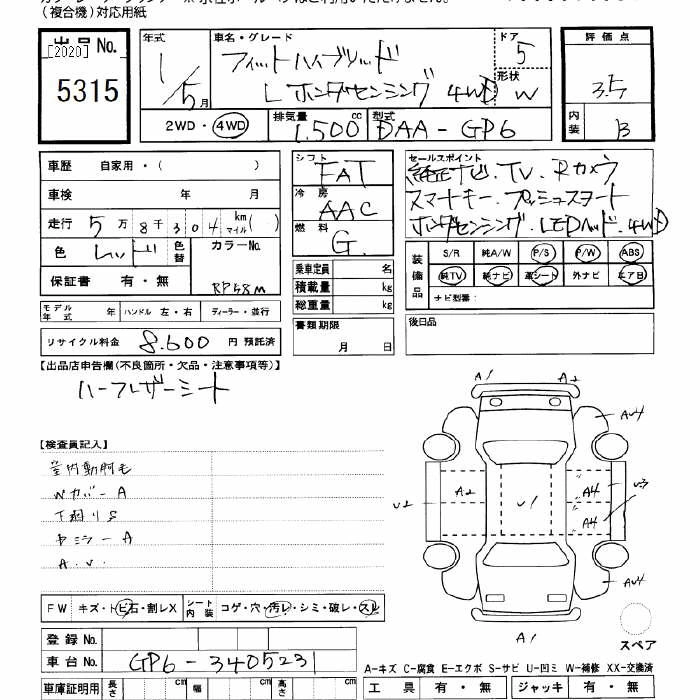 (複合機)対応用紙
出品No.
[2020]
5315
年式 車名・グレード ドア 評価点
1/5月 フィットハイブリッド 5 3.5
L ホンダセンシング 4WD 形状 W
2WD・4WD 排気量 1.500 cc 型式 DAA-GP6 内装 B
車歴 自家用・( )
車検 年 月
走行 5万8千304 km マイル ( )
色 レッド 色替 カラーNo. RP58M
保証書 有・無
モデル年式 年 ハンドル 左・右 ディーラー・並行
リサイクル料金 8.600 円 預託済
シフト FAT
冷房 AAC
燃料 G.
乗車定員 名
積載量 kg
総重量 kg
書類期限
月 日
セールスポイント
純正ナビ.TV.Rカメラ
スマートキー.プッシュスタート
ホンダセンシング.LEDヘッド.4WD
装備品
S/R 純A/W P/S P/W ABS
純TV 純ナビ 革シート 外ナビ エア B
ナビ型番:
後日品
【出品店申告欄(不良箇所・欠品・注意事項等)】
ハーフレザーシート
【検査員記入】
Wカバー A
A.U.
FW キズ・トビ石・割レX シート内装 コゲ・穴・汚レ・シミ・破レ・スレ
登録No.
車台No. GP6-3405231
車庫証明用 長さ cm 幅 cm 高さ cm
A1 A2
AU4
U2 A2 U1 A4 U3
A4
AU4
A1
スペア
A-キズ C-腐食 E-エクボ S-サビ U-凹ミ W-補修 XX-交換済
工具 有・無 ジャッキ 有・無